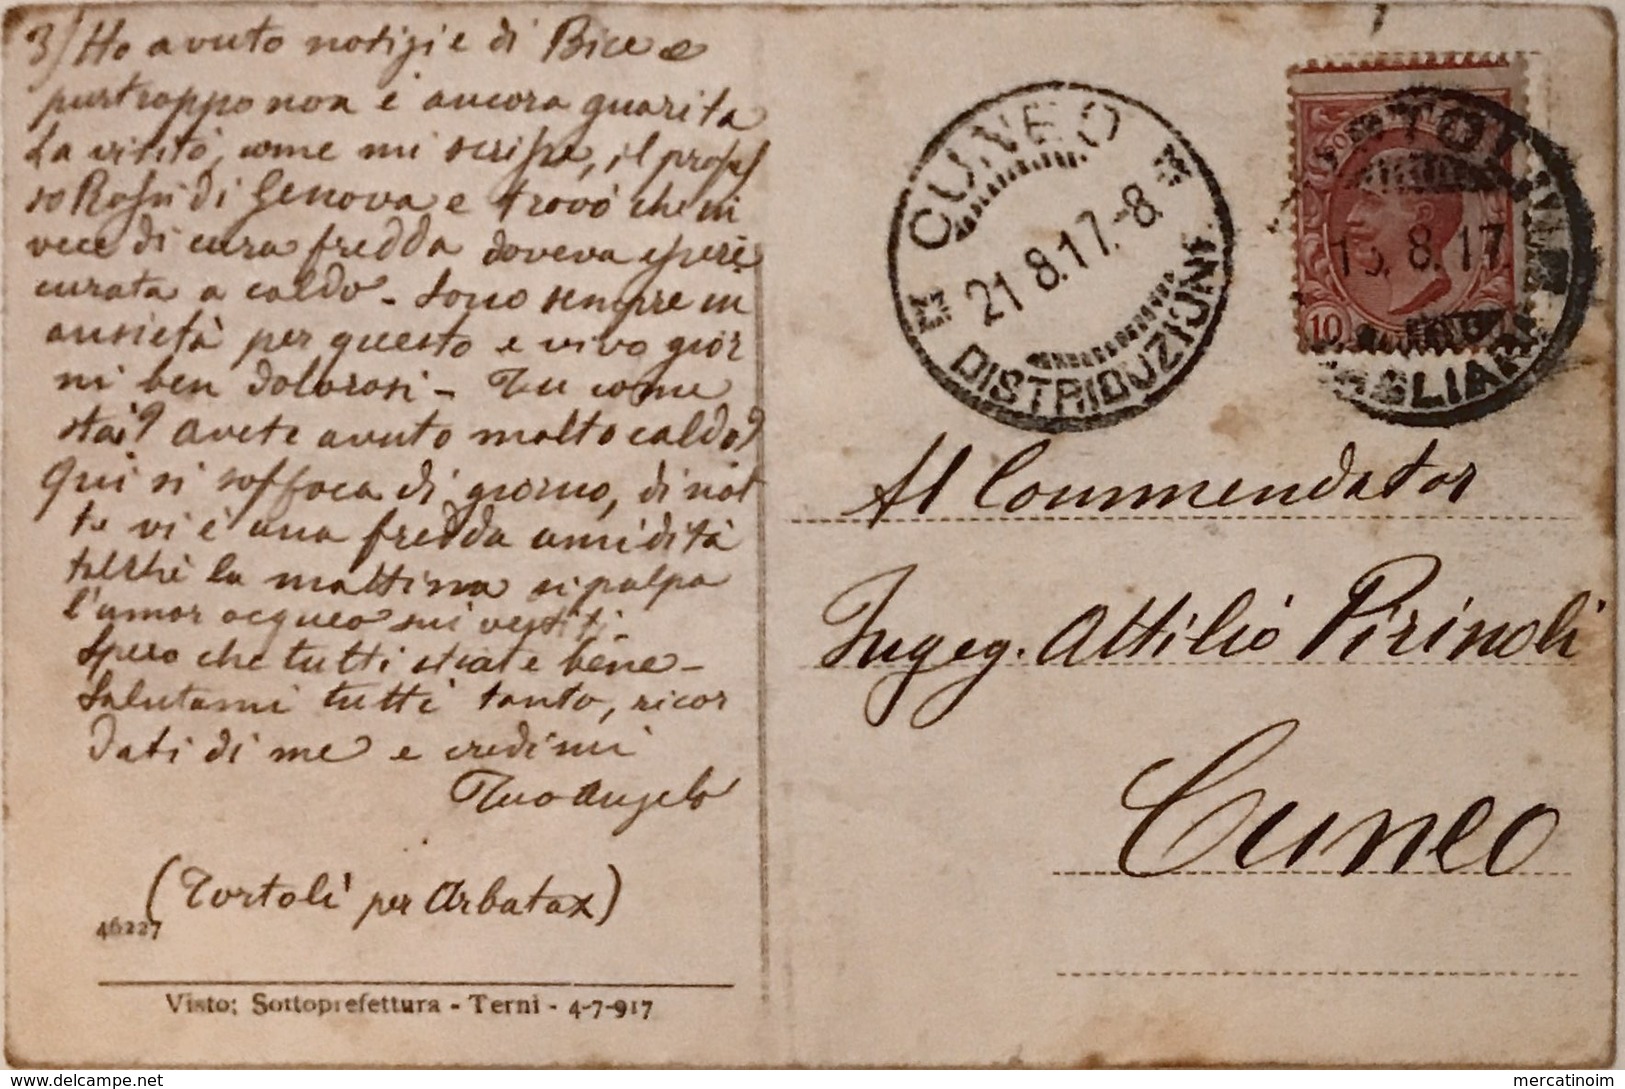 3/ Ho avuto notizie di Bice e
purtroppo non è ancora guarita
La visitò, come mi scrisse, il profes
so Rossi di Genova e trovò che in
vece di cura fredda doveva essere
curata a caldo - Sono sempre in
ansietà per questo e vivo gior
ni ben dolorosi - Tu come
stai? Avete avuto molto caldo?
Qui si soffoca di giorno, di not
te vi è una fredda umidità
talchè la mattina si palpa
l'umor acqueo sui vestiti -
Spero che tutti stiate bene -
Salutami tutti tanto, ricor
dati di me e credimi
Tuo Angelo
(Tortolì per Arbatax)
46227
Visto: Sottoprefettura - Terni - 4-7-917
CUNEO
21 8.17.-8
DISTRIBUZIONE
TORTOLI
8.17
CAGLIARI
10
Al Commendator
Ingeg. Attilio Pirinoli
Cuneo
delcampe.net
mercatinoim